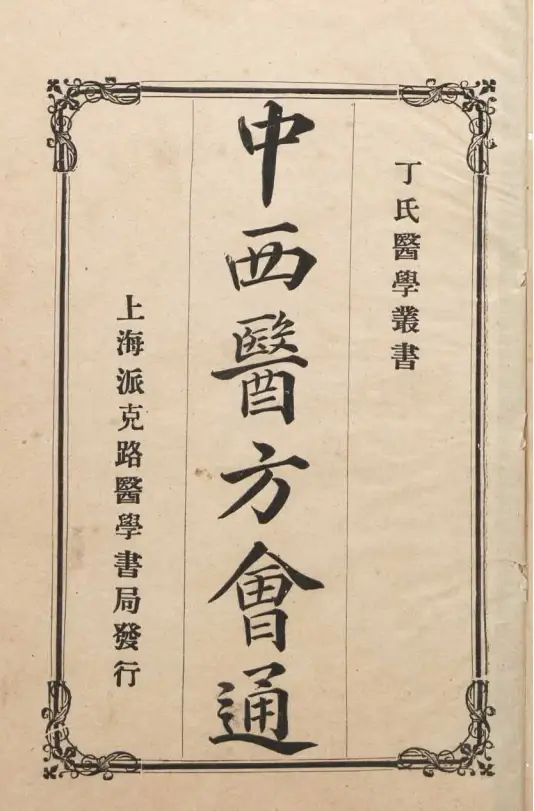 丁氏醫學叢書
中西醫方會通
上海派克路醫學書局發行